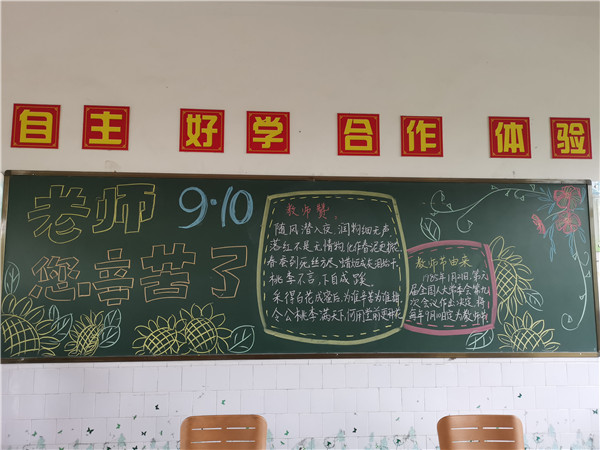 自主 好学 合作 体验
老师 9·10
您辛苦了
教师赞
随风潜入夜，润物细无声，
落红不是无情物，化作春泥更护花
春蚕到死丝方尽，蜡炬成灰泪始干，
桃李不言，下自成蹊
采得百花成蜜后，为谁辛苦为谁甜
令公桃李满天下，何用堂前更种花
教师节由来
1985年1月21日，第六
届全国人大常委会第九
次会议作出决定，将
每年9月10日定为教师节